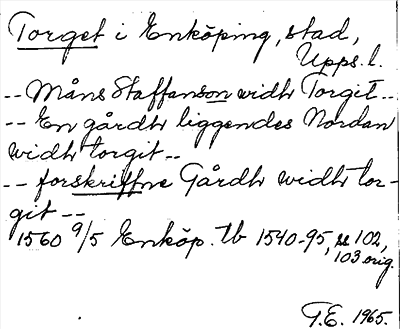 Torget i Enköping, stad,
Upps. l.
-- Måns Staffanson widh Torgit --
-- En gårdh liggendes Nordan
widh torgit --
-- forskriffne Gårdh widh tor-
git --
1560 9/5 Enköp. tb 1540-95, ss 102,
103 orig.
T.E. 1965.